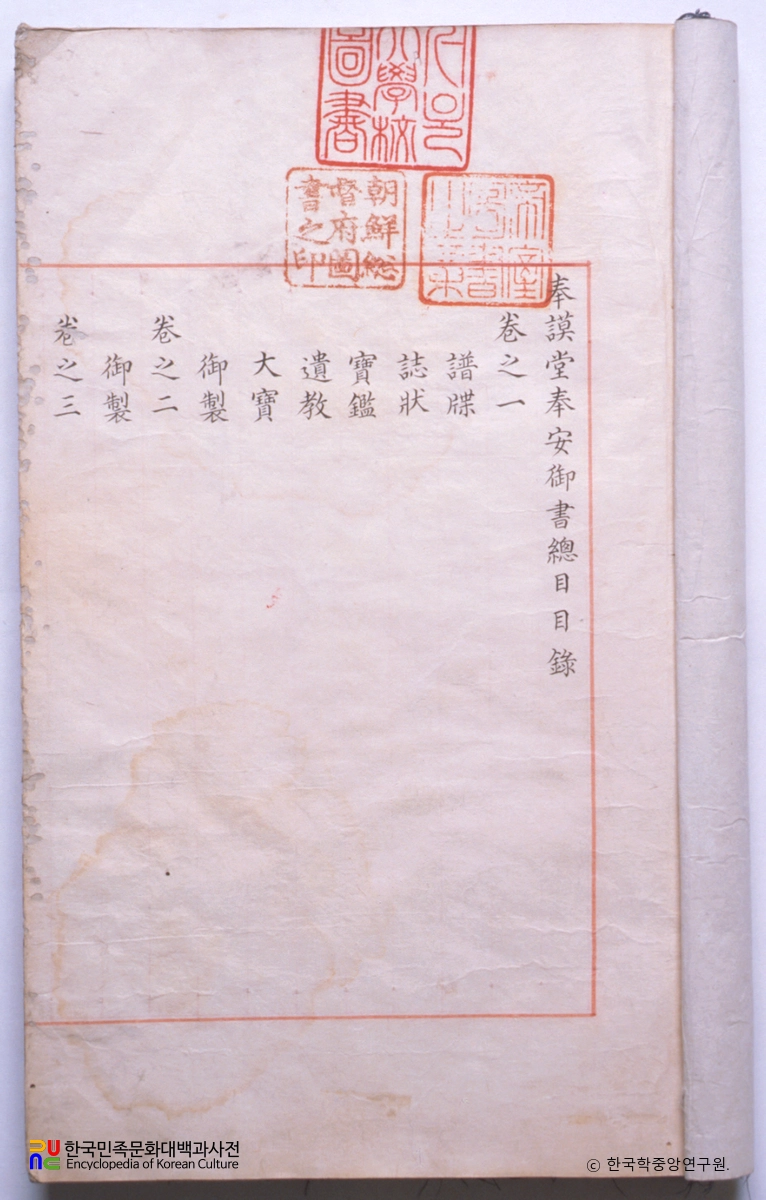 奉謨堂奉安御書總目目錄
卷之一
譜牒
誌狀
寶鑑
遺教
大寶
御製
卷之二
御製
卷之三
大學校
圖書
帝室
圖書
之章
朝鮮総
督府圖
書之印
한국민족문화대백과사전
Encyclopedia of Korean Culture
© 한국학중앙연구원.